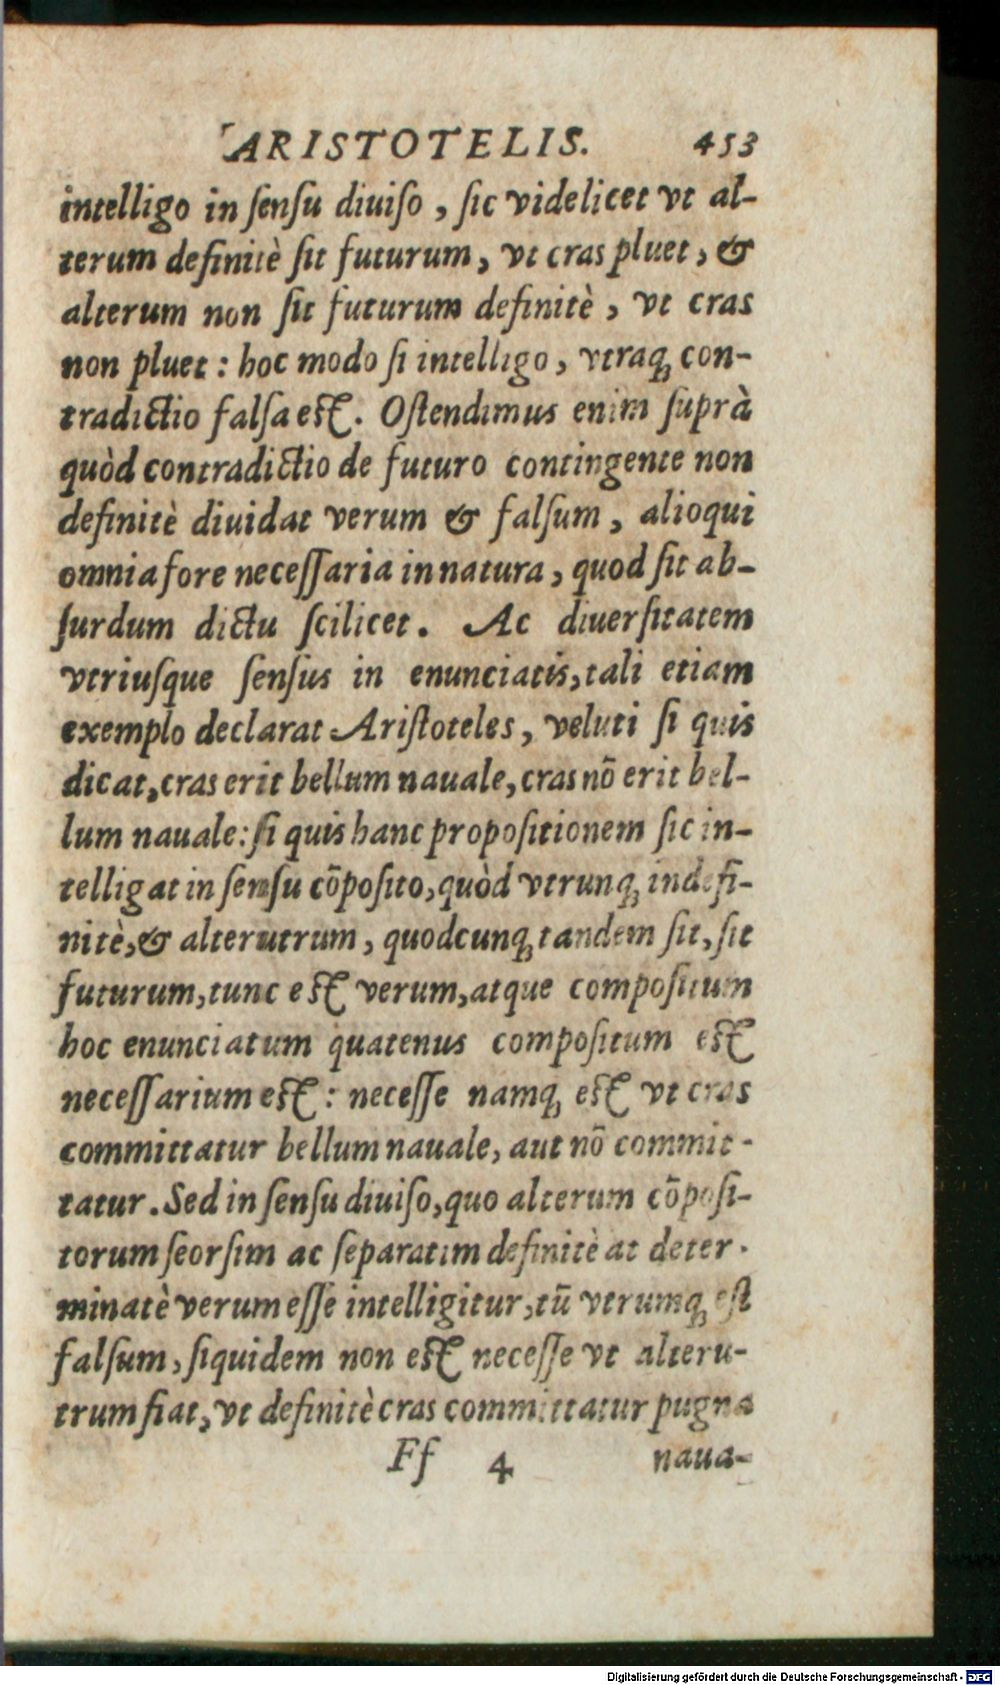 ARISTOTELIS. 453
intelligo in ſenſu diuiſo , ſic videlicet vt al-
terum definitè ſit futurum, vt cras pluet, &
alterum non ſit futurum definitè, vt cras
non pluet : hoc modo ſi intelligo, vtraq; con-
tradictio falſa eſt. Oſtendimus enim ſuprà
quòd contradictio de futuro contingente non
definitè diuidat verum & falſum, alioqui
omnia fore neceſſaria in natura, quod ſit ab-
ſurdum dictu ſcilicet. Ac diuerſitatem
vtriuſque ſenſus in enunciatis, tali etiam
exemplo declarat Ariſtoteles, veluti ſi quis
dicat, cras erit bellum nauale, cras nõ erit bel-
lum nauale: ſi quis hanc propoſitionem ſic in-
telligat in ſenſu cõpoſito, quòd vtrunq; indefi-
nitè, & alterutrum, quodcunq; tandem ſit, ſit
futurum, tunc eſt verum, atque compoſitum
hoc enunciatum quatenus compoſitum eſt
neceſſarium eſt : neceſſe namq; eſt vt cras
committatur bellum nauale, aut nõ commit-
tatur. Sed in ſenſu diuiſo, quo alterum cõpoſi-
torum ſeorſim ac ſeparatim definitè at deter-
minatè verum eſſe intelligitur, tũ vtrumq; eſt
falſum, ſiquidem non eſt neceſſe vt alteru-
trum fiat, vt definitè cras committatur pugna
Ff 4 naua-
Digitalisierung gefördert durch die Deutsche Forschungsgemeinschaft - DFG